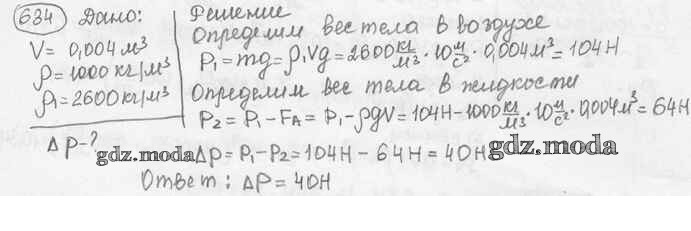 634 Дано:
V = 0,004 м³
ρ = 1000 кг/м³
ρ₁ = 2600 кг/м³
Δp - ?
Решение
Определим вес тела в воздухе
P₁ = mg = ρ₁Vg = 2600 кг/м³ · 10 м/с² · 0,004 м³ = 104 Н
Определим вес тела в жидкости
P₂ = P₁ - FA = P₁ - ρgV = 104Н - 1000 кг/м³ · 10 м/с² · 0,004 м³ = 64Н
gdz.moda Δp = P₁ - P₂ = 104Н - 64Н = 40Н gdz.moda
Ответ: Δp = 40Н